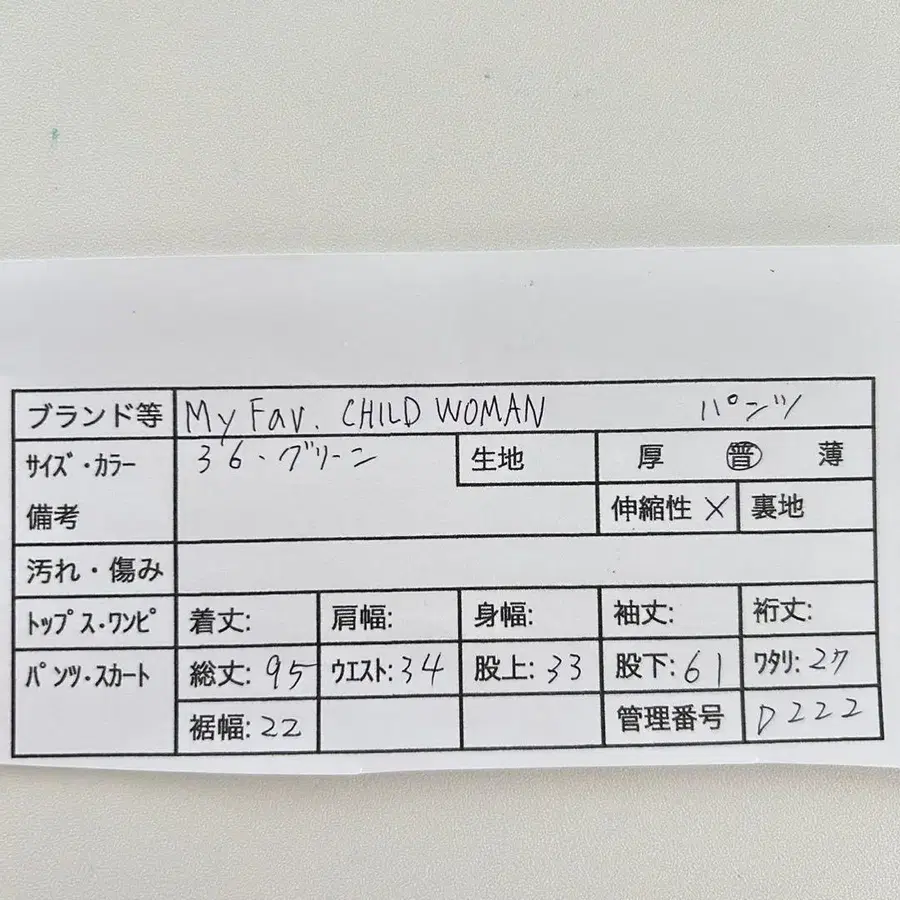 ブランド等 My Fav. CHILD WOMAN パンツ
サイズ・カラー 36・グリーン 生地 厚 普 薄
備考 伸縮性 × 裏地
汚れ・傷み
トップス・ワンピ 着丈: 肩幅: 身幅: 袖丈: 裄丈:
パンツ・スカート 総丈: 95 ウエスト: 34 股上: 33 股下: 61 ワタリ: 27
裾幅: 22 管理番号 D222